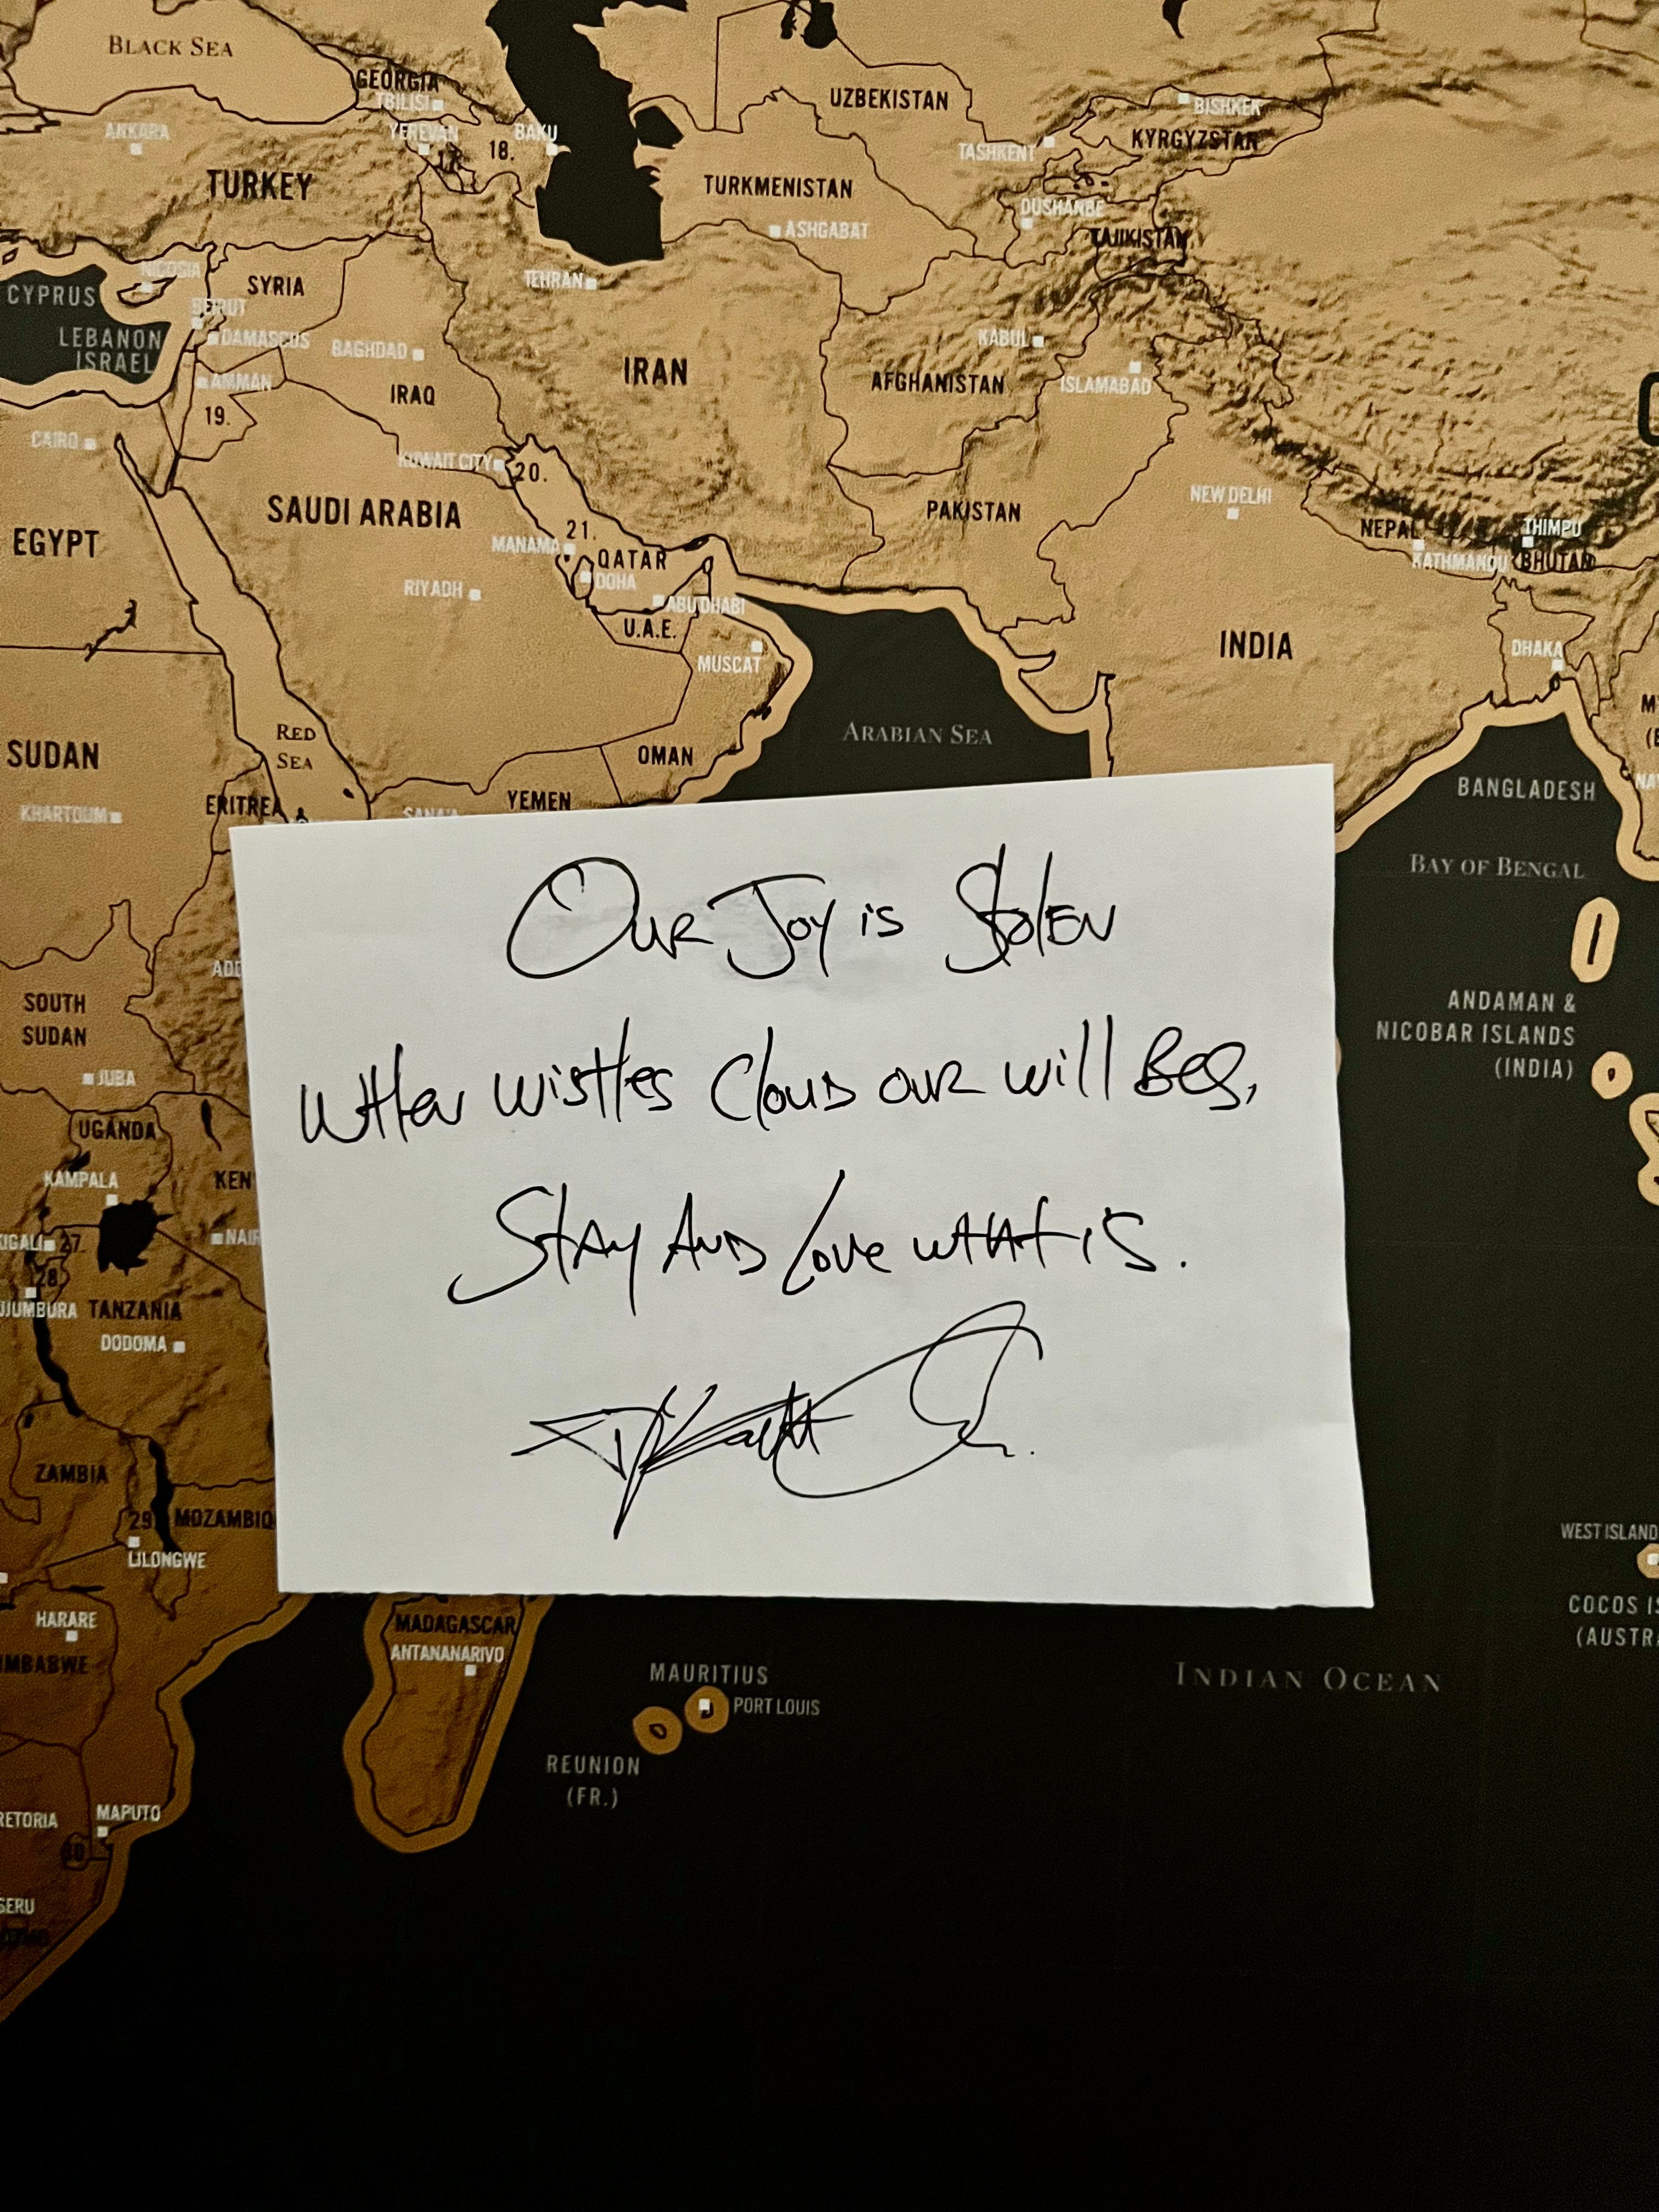 BLACK SEA
GEORGIA
TBILISI
UZBEKISTAN
BISHKEK
KYRGYZSTAN
ANKARA
YEREVAN
18.
BAKU
TASHKENT
TURKEY
TURKMENISTAN
ASHGABAT
DUSHANBE
TAJIKISTAN
NICOSIA
CYPRUS
SYRIA
TEHRAN
BEIRUT
LEBANON
DAMASCUS
ISRAEL
BAGHDAD
KABUL
IRAN
AFGHANISTAN
ISLAMABAD
AMMAN
IRAQ
19.
CAIRO
KUWAIT CITY
20.
SAUDI ARABIA
PAKISTAN
NEW DELHI
NEPAL
THIMPU
KATHMANDU
BHUTAN
EGYPT
21.
MANAMA
QATAR
DOHA
RIYADH
ABU DHABI
U.A.E.
MUSCAT
INDIA
DHAKA
RED
SEA
ARABIAN SEA
SUDAN
OMAN
KHARTOUM
ERITREA
YEMEN
SANA'A
BANGLADESH
BAY OF BENGAL
OUR JOY is StolEN
WHEN WistlEs Cloud OUR will BEg,
StAy AND love wHAt is.
ADD
SOUTH
SUDAN
JUBA
ANDAMAN &
NICOBAR ISLANDS
(INDIA)
UGANDA
KAMPALA
KEN
NAIR
KIGALI
27.
28.
UJUMBURA
TANZANIA
DODOMA
ZAMBIA
29.
MOZAMBIQ
LILONGWE
HARARE
IMBABWE
MADAGASCAR
ANTANANARIVO
MAURITIUS
PORT LOUIS
REUNION
(FR.)
INDIAN OCEAN
WEST ISLAND
COCOS IS
(AUSTRA
RETORIA
MAPUTO
30
SERU